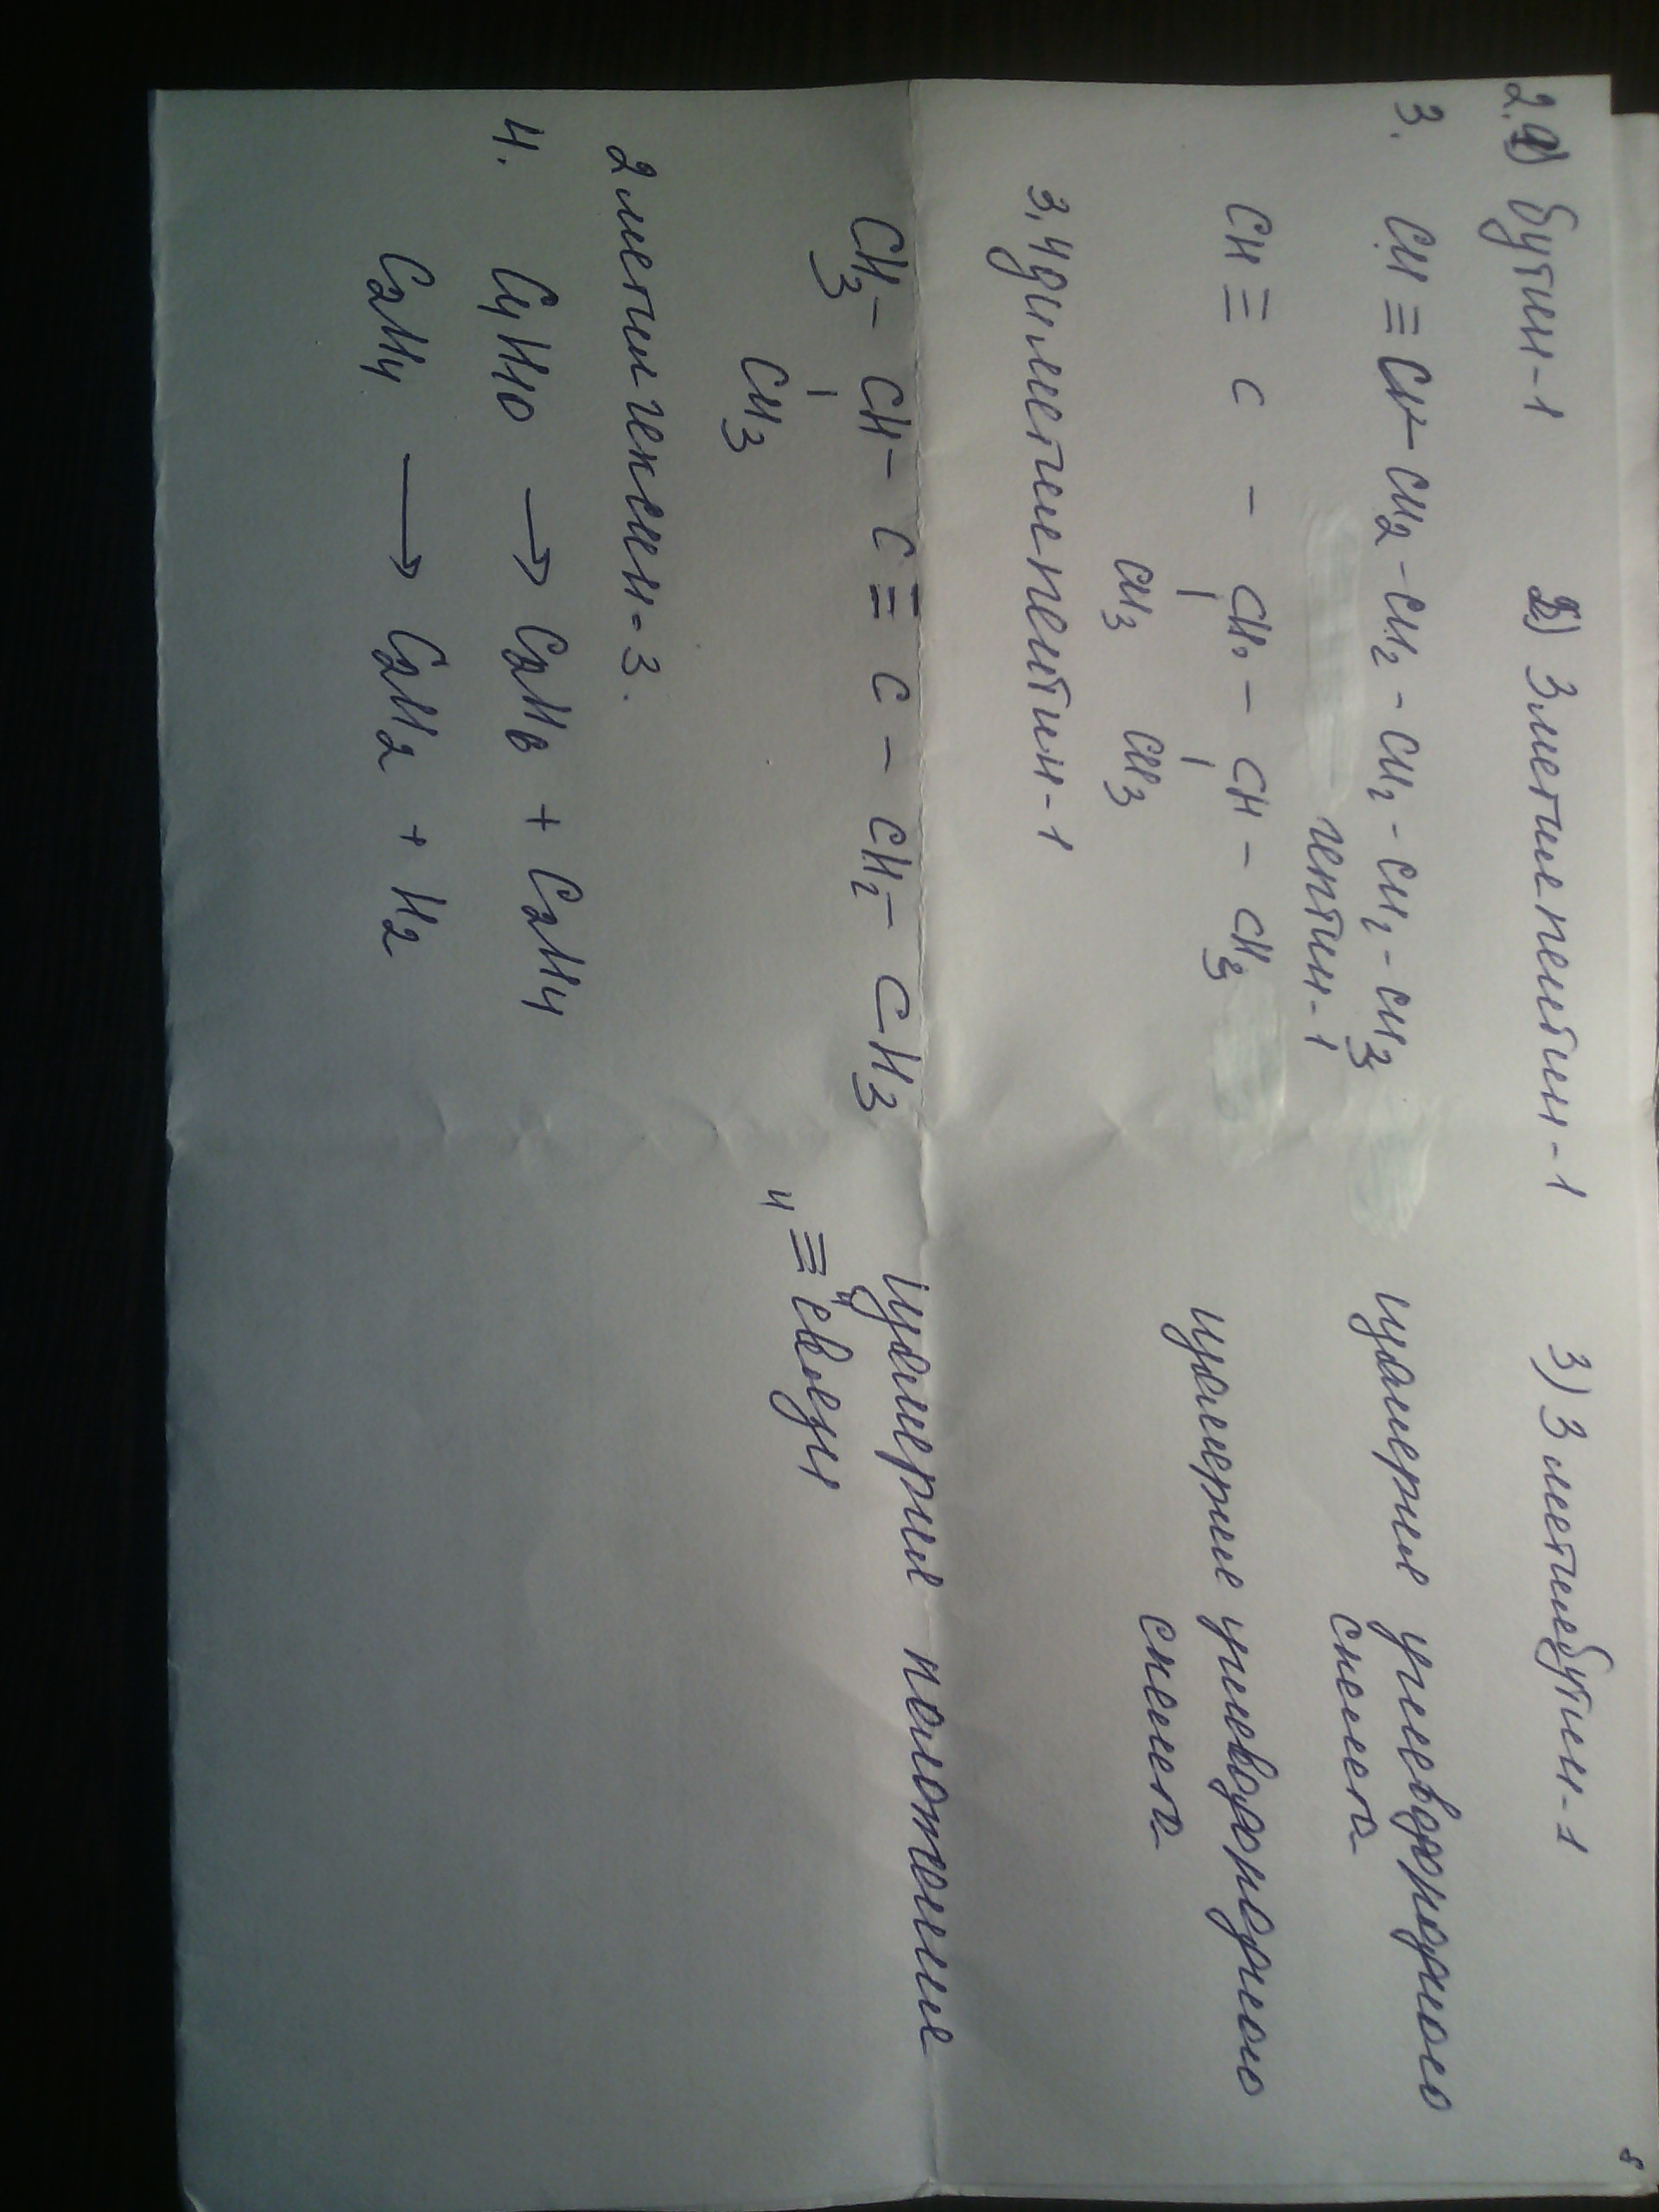 2. 1) бутин-1 2) 3метилпентин-1 3) 3метилбутин-1
3. CH≡C-CH2-CH2-CH2-CH2-CH3 изомерия углеводородного
гептин-1 скелета
CH≡C-CH-CH-CH3 изомерия углеводородного
CH3 CH3 скелета
3,4диметилпентин-1
CH3-CH-C≡C-CH2-CH3 изомерия положение
CH3 "≡" связи
2метилгексин-3.
4. C4H10 → C2H6 + C2H4
C2H4 → C2H2 + H2